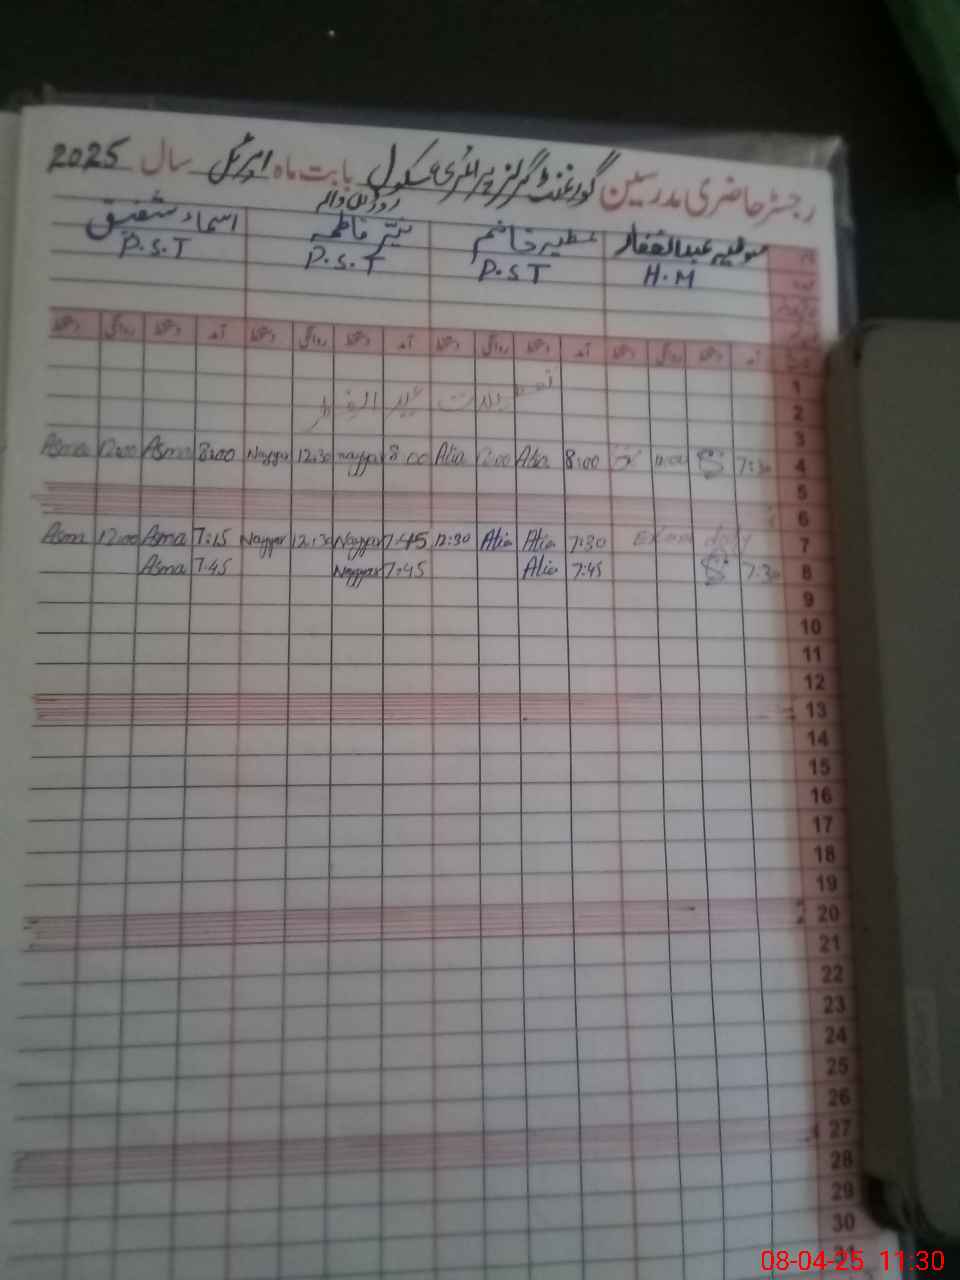 رجسٹر حاضری مدرسین گورنمنٹ گرلز پرائمری سکول بابت ماہ اپریل سال 2025
عبدالغفار نیّر فاطمہ اسماء شفیق
H.M P.S.T P.S.T P.S.T
آمد دستخط روانگی دستخط آمد دستخط روانگی دستخط آمد دستخط روانگی دستخط آمد دستخط روانگی دستخط
1
2
3
4 7:30 8:00 Alia Alia 8:00 nayyar 12:30 Nayyar 8:00 Asma 12:00 Asma
5
6
7 Exam duty 7:30 Alia Alia 12:30 7:45 Nayyar 12:30 Nayyar 7:15 Asma 12:00 Asma
8 7:30 7:45 Alia 7:45 Nayyar 7:45 Asma
9
10
11
12
13
14
15
16
17
18
19
20
21
22
23
24
25
26
27
28
29
30
31
08-04-25 11:30